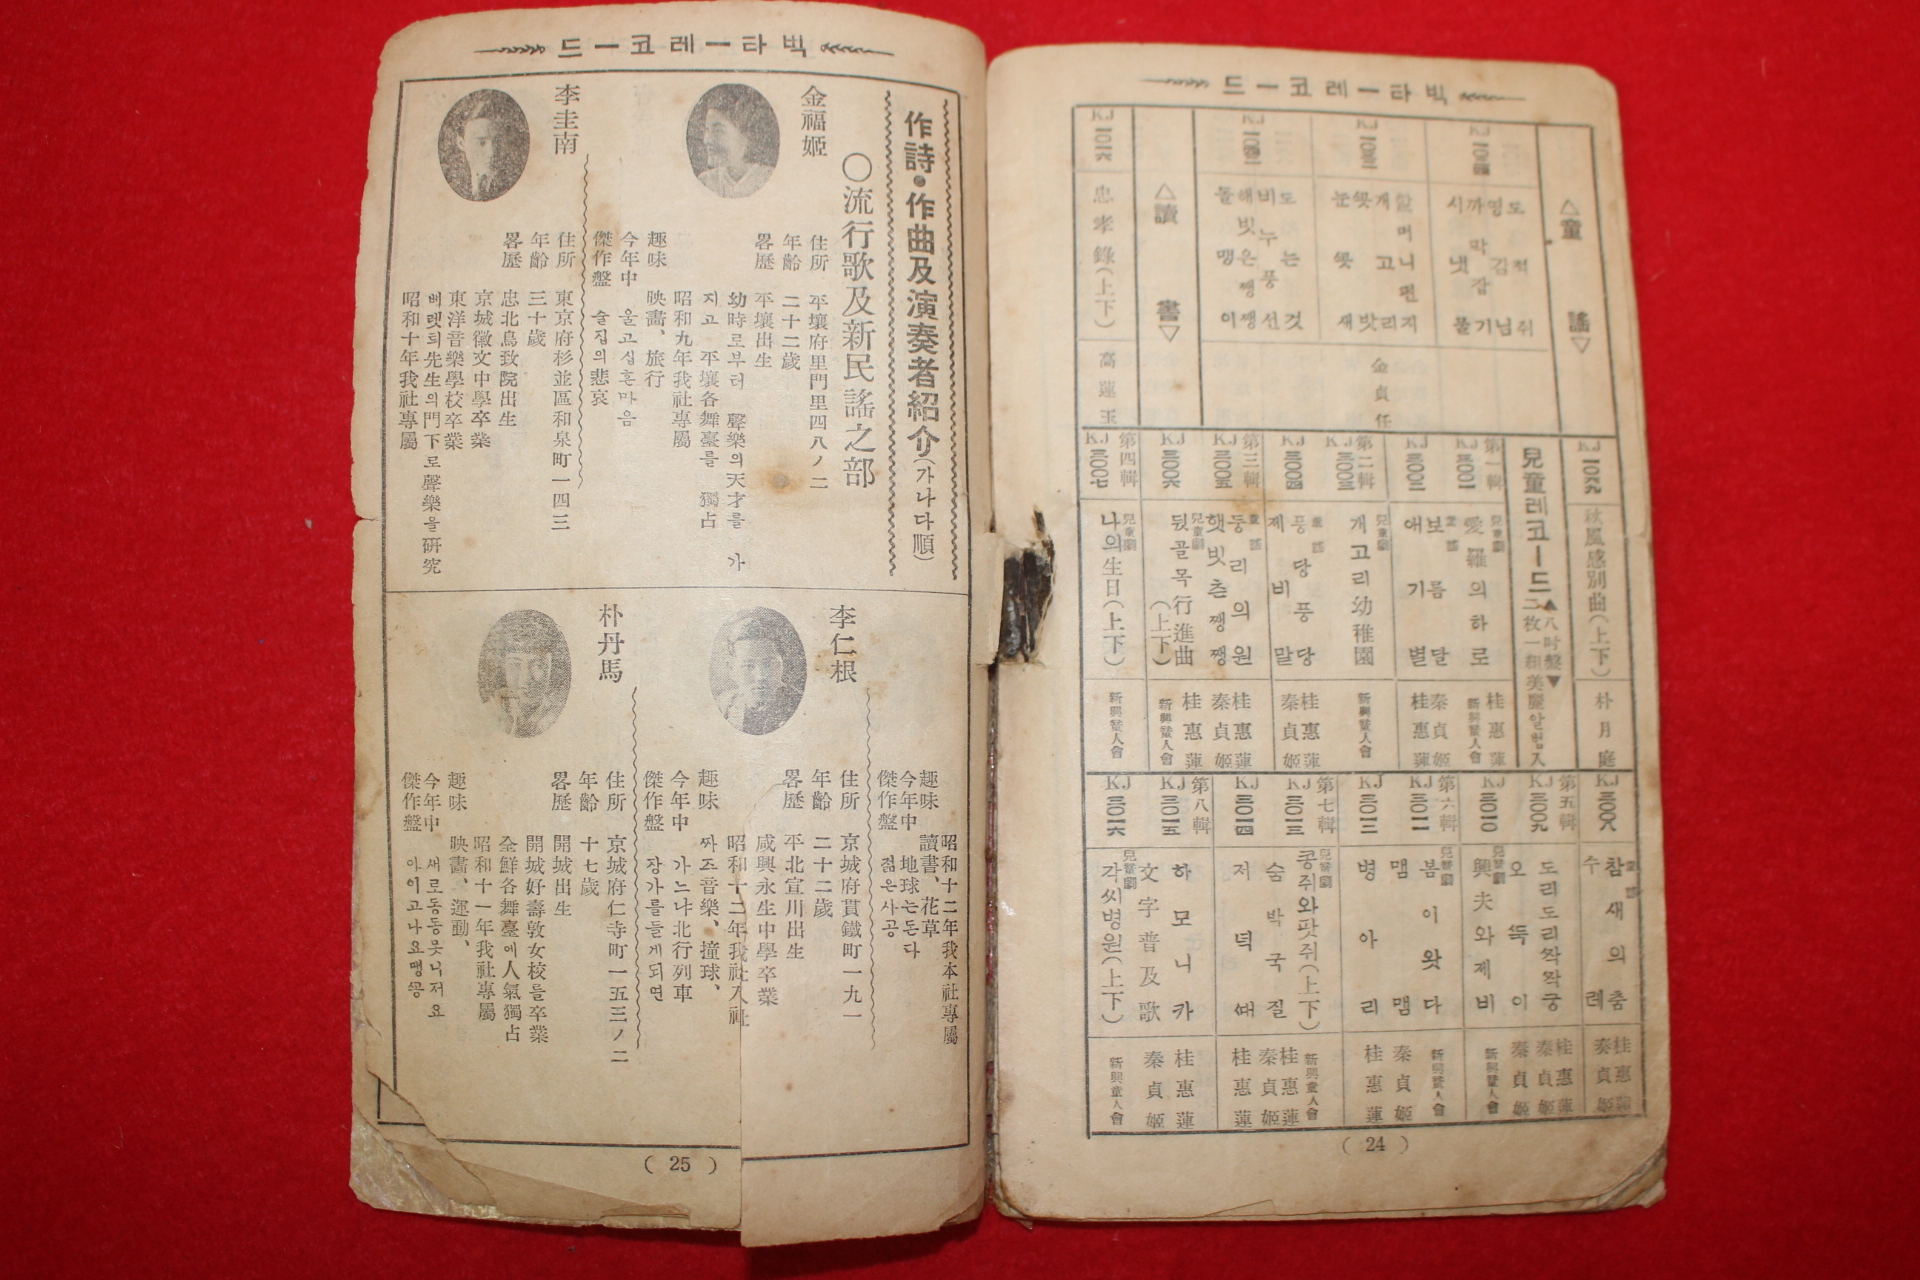 빅타ー레코ー드
△童謠▽
KJ
도적쥐
영감님
까막잡기
시냇물
할머니편지
개고리
쏫밧
눈쏫새
도는것
비누풍선
해빗은쨍쨍
金貞任
△讀書▽
KJ 一〇一六
忠孝錄(上下)
高蓮玉
KJ 一〇六九
秋風感別曲(上下)
朴月庭
兒童레코ー드
▲八吋盤▼
第一輯
KJ 三〇〇一
兒童劇
愛羅의하로
桂惠蓮
新興童人會
KJ 三〇〇二
童謠
보름달
애기별
秦貞姬
桂惠蓮
第二輯
KJ 三〇〇三
兒童劇
개고리幼稚園
新興童人會
KJ 三〇〇四
童謠
풍당풍당
제비말
桂惠蓮
秦貞姬
第三輯
KJ 三〇〇五
童謠
둥리의원
햇빗츤쨍쨍
桂惠蓮
秦貞姬
KJ 三〇〇六
兒童劇
뒷골목行進曲
(上下)
桂惠蓮
新興童人會
第四輯
KJ 三〇〇七
兒童劇
나의生日(上下)
新興童人會
KJ 三〇〇八
童謠
참새의춤
수레
桂惠蓮
秦貞姬
第五輯
KJ 三〇〇九
도리도리짝짝궁
오뚝이
桂惠蓮
秦貞姬
秦貞姬
KJ 三〇一〇
兒童劇
興夫와제비
新興童人會
第六輯
KJ 三〇一一
兒童劇
봄이왓다
新興童人會
KJ 三〇一二
맴맴
병아리
秦貞姬
桂惠蓮
第七輯
KJ 三〇一三
兒童劇
콩쥐와팟쥐(上下)
新興童人會
KJ 三〇一四
숨박국질
저녁때
桂惠蓮
秦貞姬
桂惠蓮
第八輯
KJ 三〇一五
하모니카
文字普及歌
桂惠蓮
秦貞姬
KJ 三〇一六
兒童劇
각씨병원(上下)
新興童人會
(24)
빅타ー레코ー드
作詩・作曲及演奏者紹介(가나다順)
○流行歌及新民謠之部
金福姬
住所 平壤府里門里四八ノ二
年齡 二十二歲
畧歷 平壤出生
幼時로부터 聲樂의天才를 가
지고 平壤各舞臺를 獨占
昭和九年我社專屬
趣味 映畵、旅行
今年中 울고십흔마음
傑作盤 술집의悲哀
李圭南
住所 東京府杉並區和泉町一四三
年齡 三十歲
畧歷 忠北鳥致院出生
京城徽文中學卒業
東洋音樂學校卒業
베렛틔先生의門下로聲樂을硏究
昭和十年我社專屬
昭和十二年我本社專屬
趣味 讀書、花草
今年中 地球는돈다
傑作盤 젊은사공
李仁根
住所 京城府貫鐵町一九一
年齡 二十二歲
畧歷 平北宣川出生
咸興永生中學卒業
昭和十二年我社入社
趣味 짜즈音樂、撞球、
今年中 가느냐北行列車
傑作盤 장가를들게되면
朴丹馬
住所 京城府仁寺町一五三ノ二
年齡 十七歲
畧歷 開城出生
開城好壽敦女校를卒業
全鮮各舞臺에人氣獨占
昭和十一年我社專屬
趣味 映畵、運動、
今年中 새로동동못니저요
傑作盤 아이고나요맹꽁
(25)